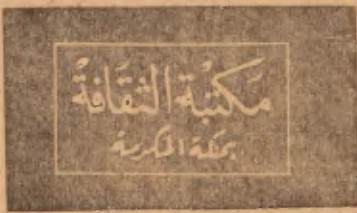 مَكتَبة الثقَافَة
بمكة المكرمة